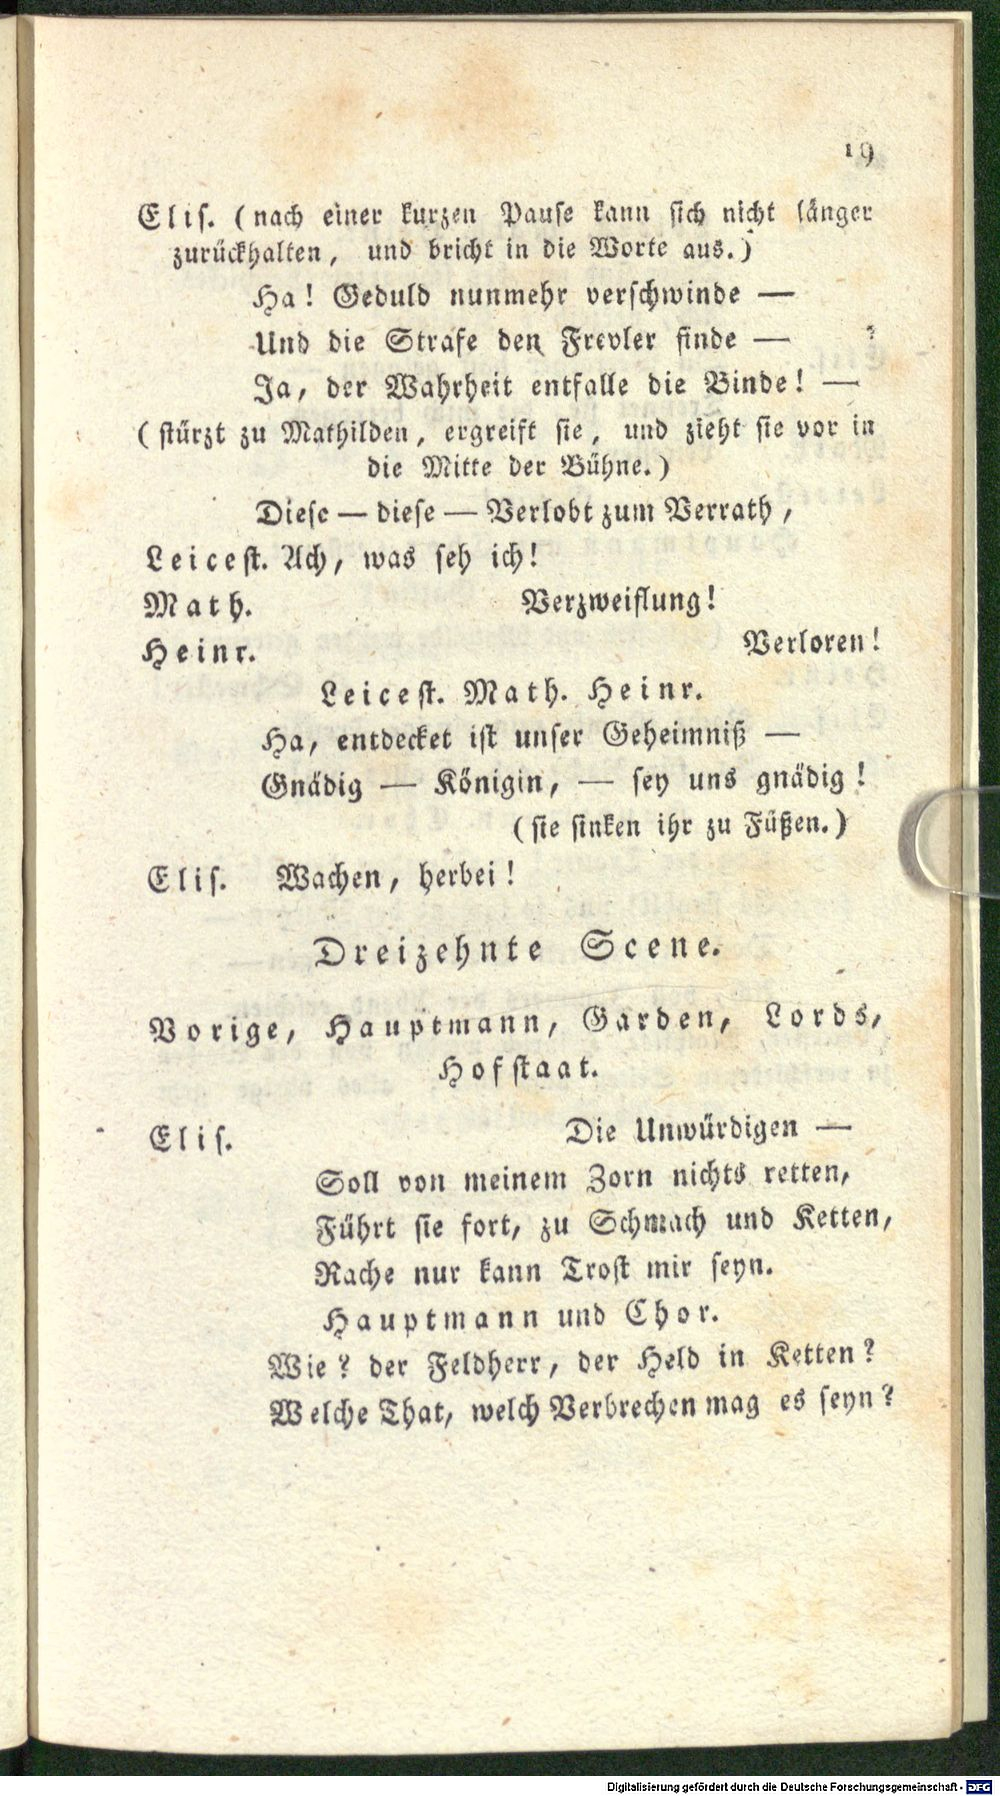 19
Elis. (nach einer kurzen Pause kann sich nicht länger
zurückhalten, und bricht in die Worte aus.)
Ha! Geduld nunmehr verschwinde —
Und die Strafe den Frevler finde —
Ja, der Wahrheit entfalle die Binde! —
(stürzt zu Mathilden, ergreift sie, und zieht sie vor in
die Mitte der Bühne.)
Diese — diese — Verlobt zum Verrath,
Leicest. Ach, was seh ich!
Math. Verzweiflung!
Heinr. Verloren!
Leicest. Math. Heinr.
Ha, entdecket ist unser Geheimniß —
Gnädig — Königin, — sey uns gnädig!
(sie sinken ihr zu Füßen.)
Elis. Wachen, herbei!
Dreizehnte Scene.
Vorige, Hauptmann, Garden, Lords,
Hofstaat.
Elis. Die Unwürdigen —
Soll von meinem Zorn nichts retten,
Führt sie fort, zu Schmach und Ketten,
Rache nur kann Trost mir seyn.
Hauptmann und Chor.
Wie? der Feldherr, der Held in Ketten?
Welche That, welch Verbrechen mag es seyn?
Digitalisierung gefördert durch die Deutsche Forschungsgemeinschaft - DFG